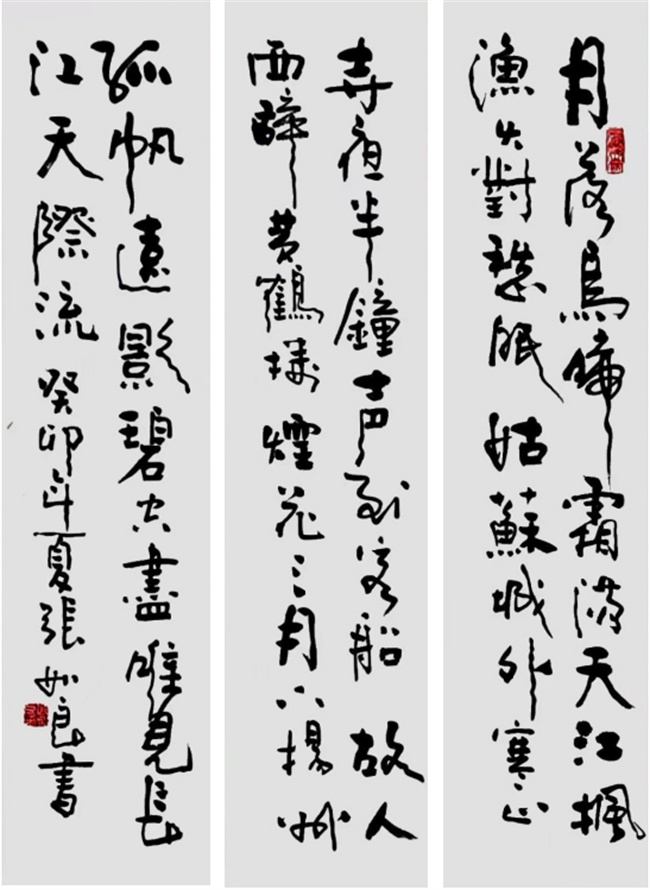 月落烏啼霜滿天江楓
漁火對愁眠姑蘇城外寒山
寺夜半鐘声到客船故人
西辭黄鶴楼煙花三月下揚州
孤帆遠影碧空盡唯見長
江天際流癸卯年夏張如良書